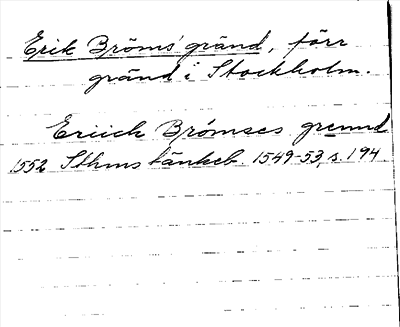 Erik Bröms' gränd, förr
gränd i Stockholm.
Eriich Brömses grennd
1552 Sthms tänkeb. 1549-53, s. 194.